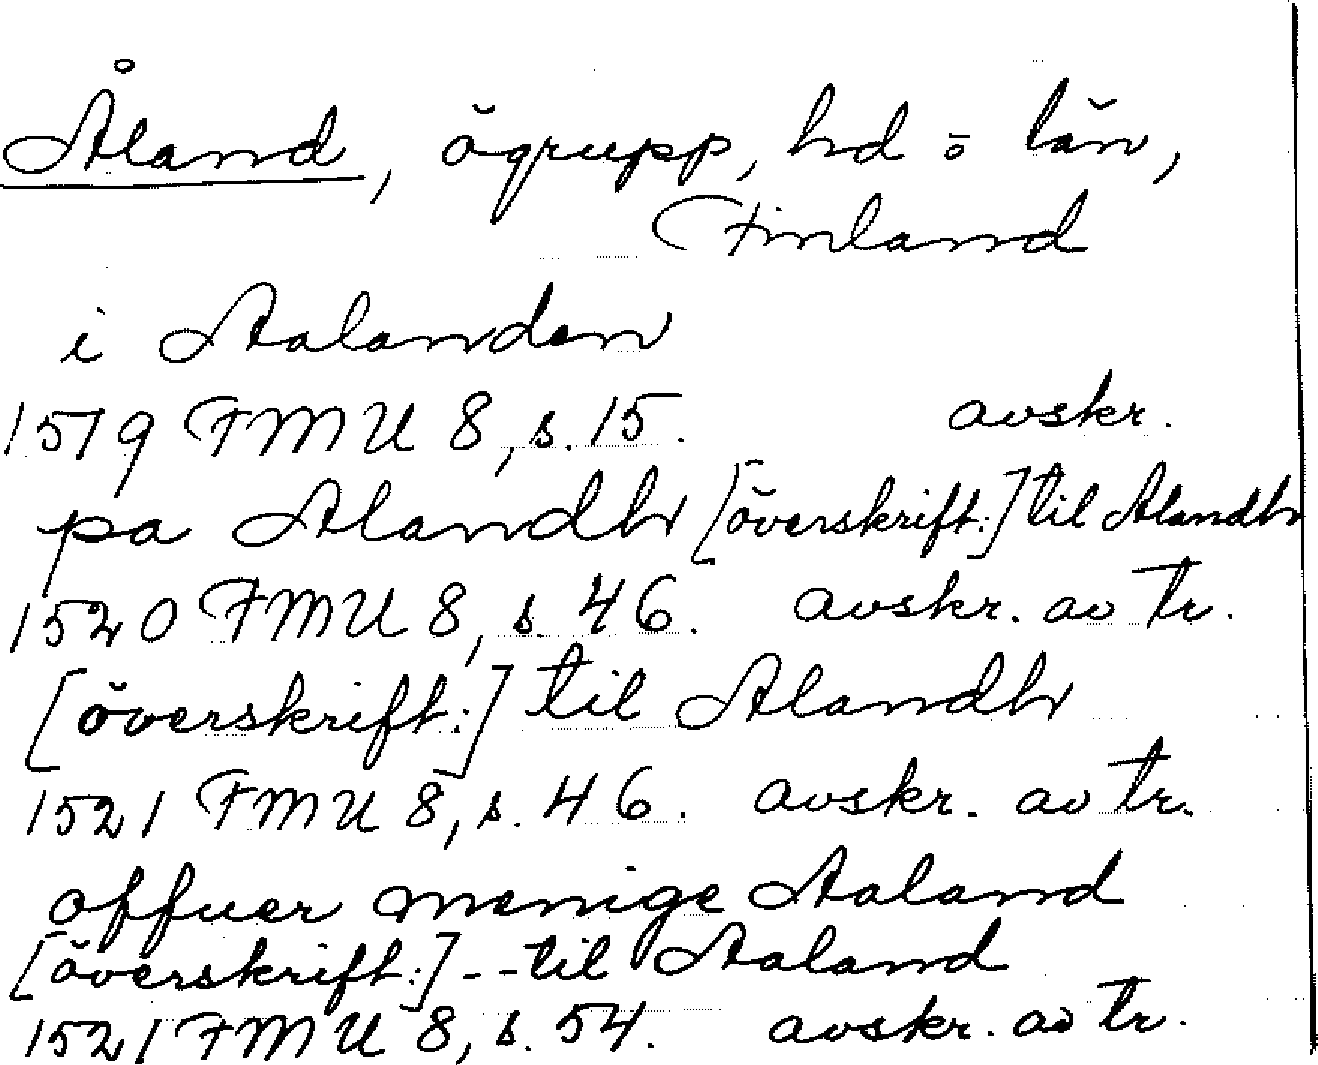 Åland, ögrupp, hd o län,
Finland
i Aalanden
1519 FMU 8, s. 15. avskr.
pa Alandh [överskrift:] til Alandh
1520 FMU 8, s. 46. avskr. av tr.
[överskrift:] til Alandh
1521 FMU 8, s. 46. avskr. av tr.
offuer menige Aaland
[överskrift:] -- til Aaland
1521 FMU 8, s. 54. avskr. av tr.